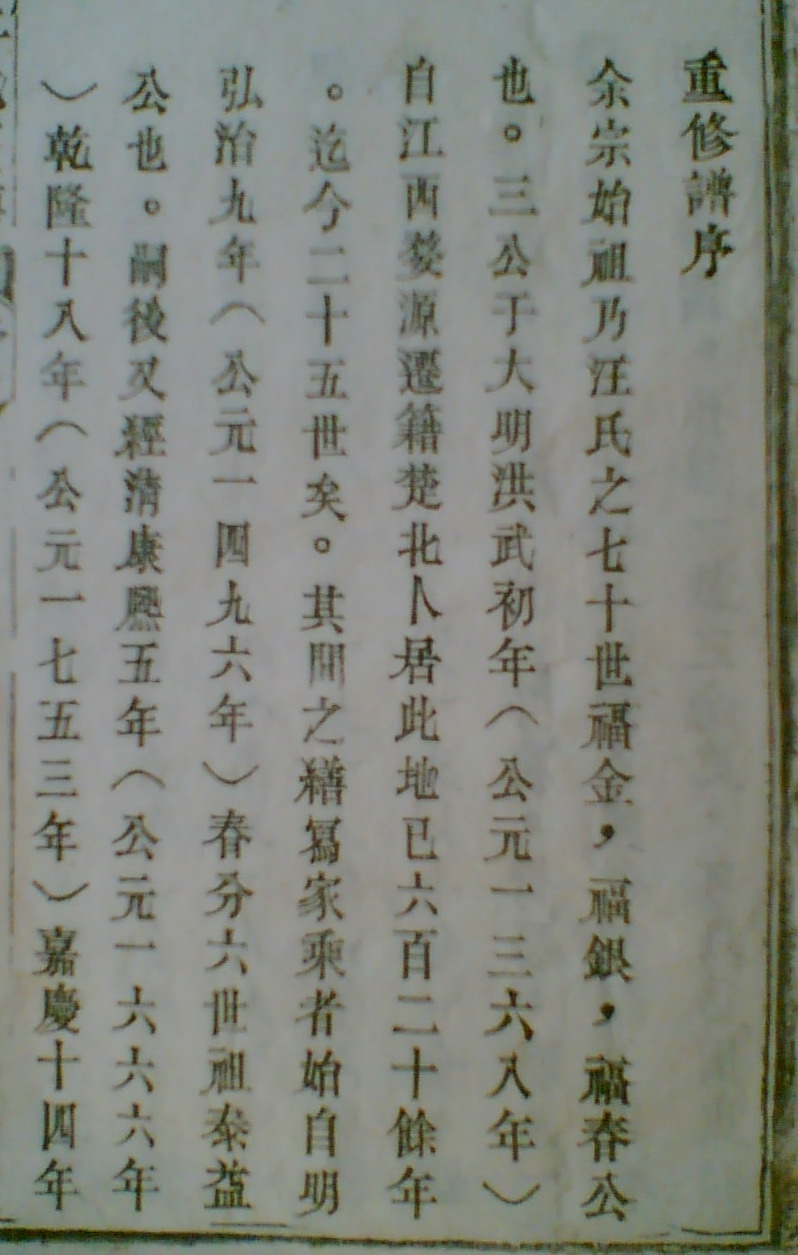 重修譜序
余宗始祖乃汪氏之七十世福金，福銀，福春公
也。三公于大明洪武初年（公元一三六八年）
自江西婺源遷籍楚北卜居此地已六百二十餘年
。迄今二十五世矣。其間之繕寫家乘者始自明
弘治九年（公元一四九六年）春分六世祖泰益
公也。嗣後又經清康熙五年（公元一六六六年
）乾隆十八年（公元一七五三年）嘉慶十四年